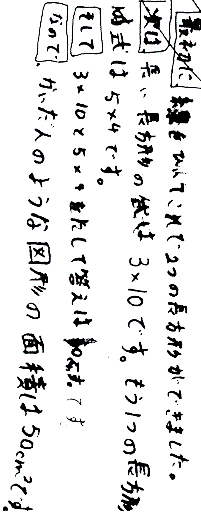 最初に 線をひいてこれで2つの長方形ができました。
次は 長い長方形の式は3×10です。もう1つの長方形
は式は5×4です。
そして 3×10と5×4をたして答えは です
なので、かいだんのような図形の面積は50cm²です。